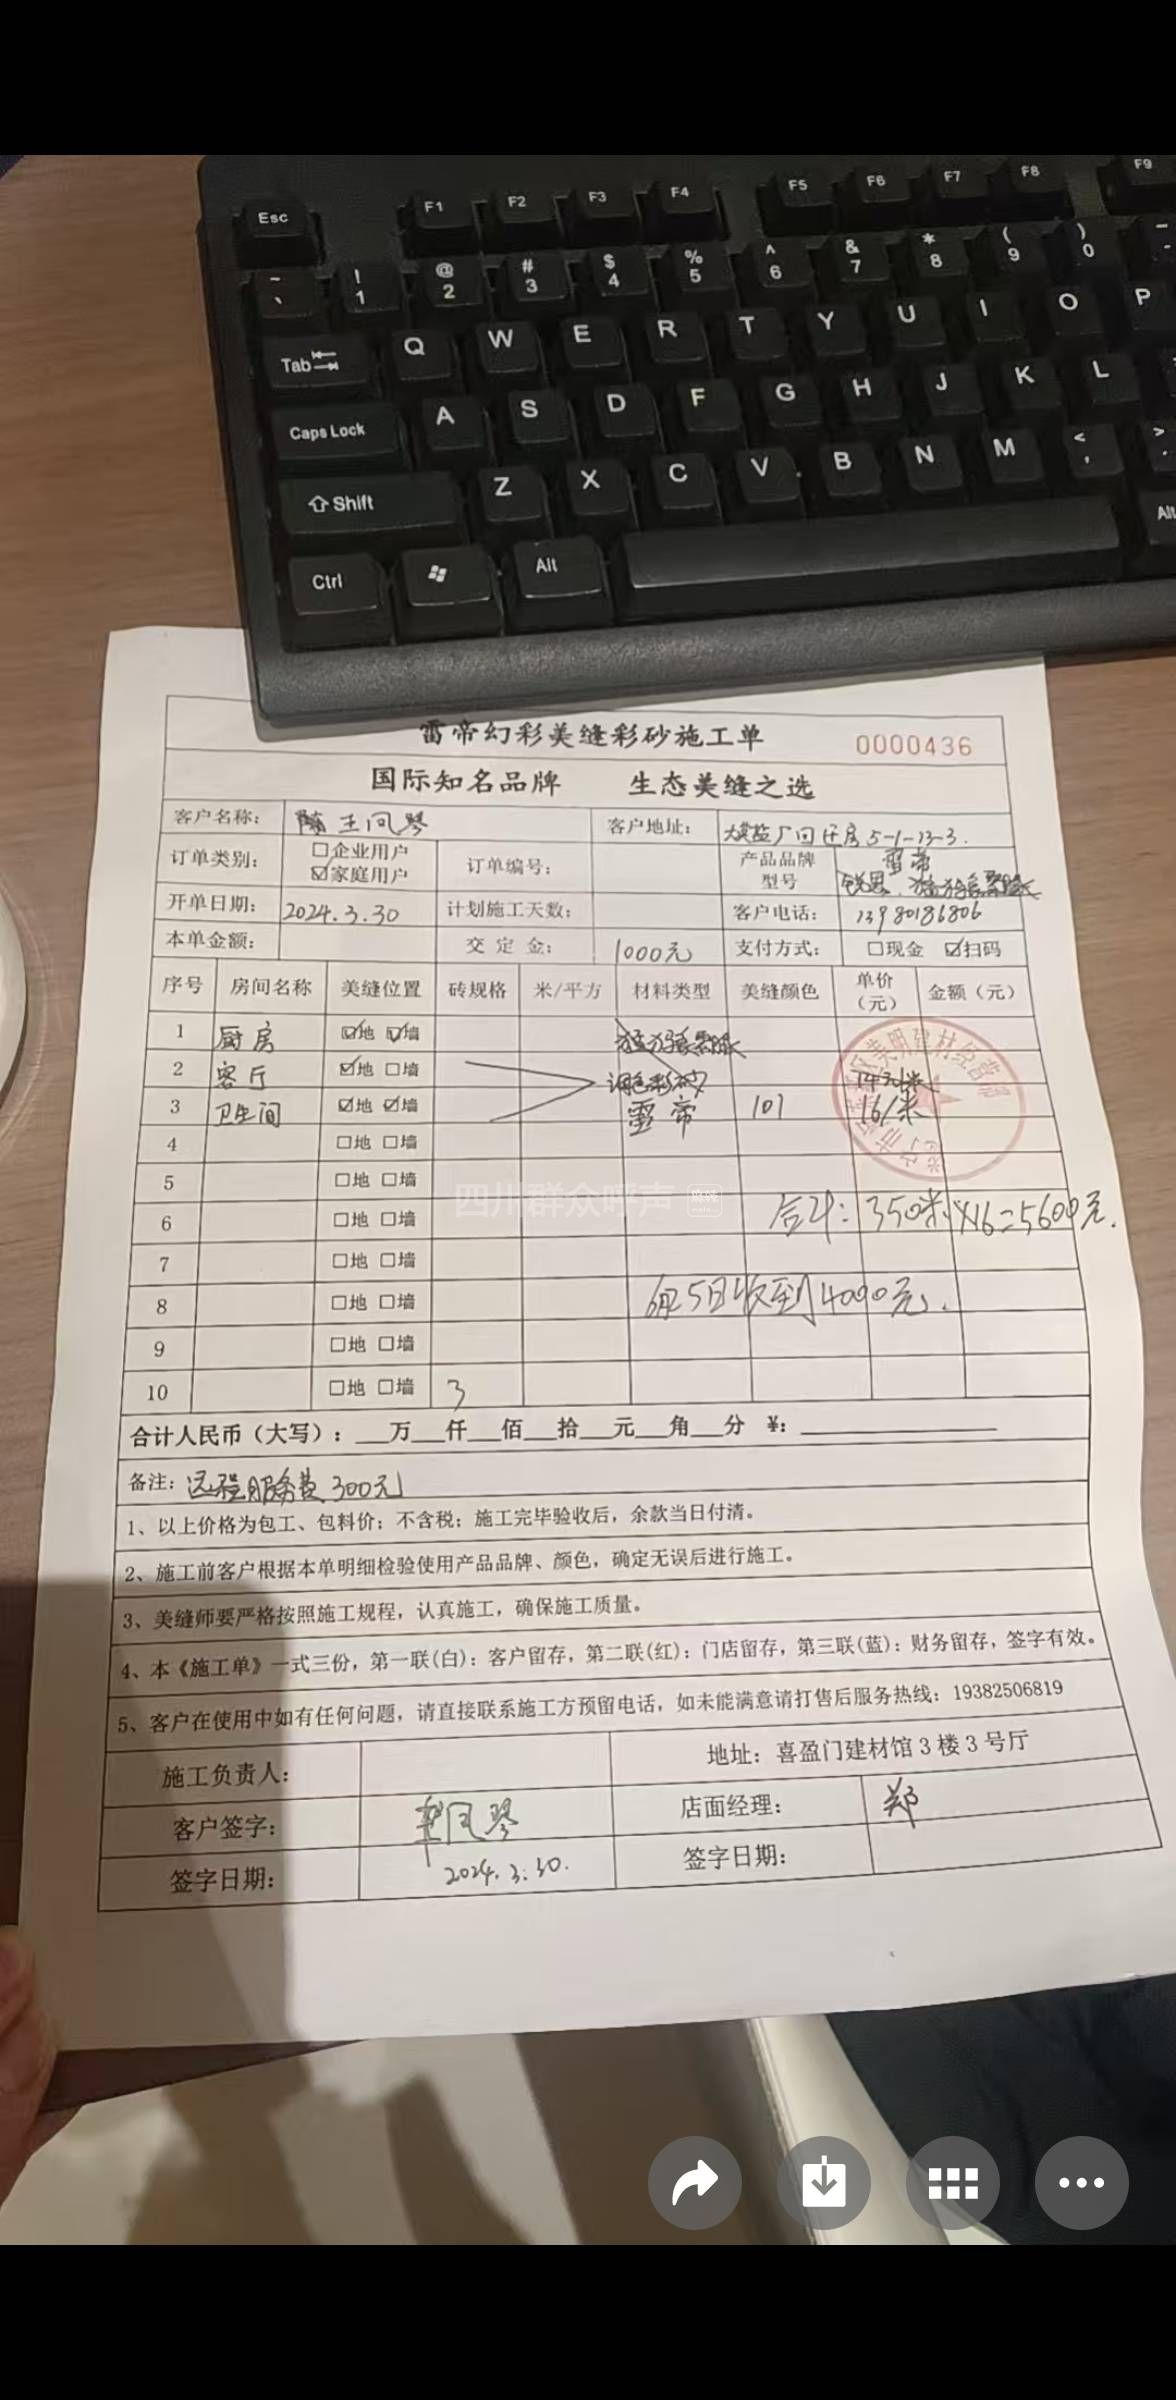 Esc F1 F2 F3 F4 F5 F6 F7 F8 F9
~ ` ! 1 @ 2 # 3 $ 4 % 5 ^ 6 & 7 * 8 ( 9 ) 0 -
Tab Q W E R T Y U I O P
Caps Lock A S D F G H J K L
Shift Z X C V B N M < , > .
Ctrl Alt Alt
雷帝幻彩美缝彩砂施工单 0000436
国际知名品牌 生态美缝之选
客户名称: 王凤琴 客户地址: 回迁房5-1-13-3.
订单类别: □企业用户 ☑家庭用户 订单编号: 产品品牌型号 雷帝
开单日期: 2024.3.30 计划施工天数: 客户电话: 13980186806
本单金额: 交定金: 1000元 支付方式: □现金 ☑扫码
序号 房间名称 美缝位置 砖规格 米/平方 材料类型 美缝颜色 单价(元) 金额(元)
1 厨房 ☑地 ☑墙
2 客厅 ☑地 □墙 调色彩砂 14元/米
3 卫生间 ☑地 ☑墙 雷帝 101 16/米
4 □地 □墙
5 □地 □墙
四川群众呼声
6 □地 □墙 合计: 350米×16=5600元.
7 □地 □墙
8 □地 □墙 6月5日收到4000元.
9 □地 □墙
10 □地 □墙 3
合计人民币(大写): 万 仟 佰 拾 元 角 分 ¥:
备注: 远程服务费300元
1、以上价格为包工、包料价; 不含税; 施工完毕验收后, 余款当日付清。
2、施工前客户根据本单明细检验使用产品品牌、颜色, 确定无误后进行施工。
3、美缝师要严格按照施工规程, 认真施工, 确保施工质量。
4、本《施工单》一式三份, 第一联(白): 客户留存, 第二联(红): 门店留存, 第三联(蓝): 财务留存, 签字有效。
5、客户在使用中如有任何问题, 请直接联系施工方预留电话, 如未能满意请打售后服务热线: 19382506819
施工负责人: 地址: 喜盈门建材馆3楼3号厅
客户签字: 王凤琴 店面经理: 郑
签字日期: 2024.3.30. 签字日期: